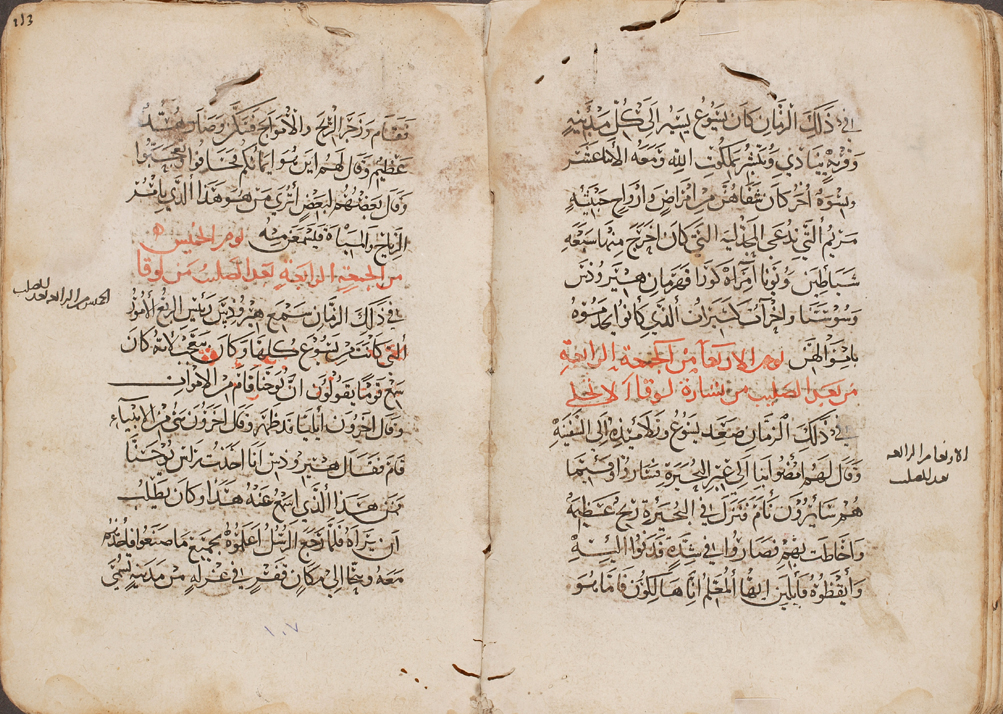 في ذلك الزمان كان يسوع يسير الى كل مدينه
وقريه ينادي ويبشر بملكوت الله ومعه الاثنا عشر
ونسوه اخر كان شفاهن من امراض وارواح خبيثه
مريم التي تدعى المجدليه التي كان اخرج منها سبعه
شياطين ويونا امراة كوزا قهرمان هيرودس
وسوسنا واخرات كثيرات الذي كانوا يخدموه
باموالهن يوم الاربعا من الجمعة الرابعة
من بعد الصليب من بشارة لوقا الانجلي
في ذلك الزمان صعد يسوع وتلاميذه الى السفينه
وقال لهم امضوا بنا الى عبر البحيرة فساروا فبينما
هم سائرون نام فنزل في البحيرة ريح عظيمة
واحاطت بهم فصاروا في شدة فدنوا اليه
وايقظوه قايلين ايها المعلم انا هالكون فاما هو
الاربعا من الرابعه
بعد الصليب
213
فقام وزجر الريح والامواج فسكن وصار هدو
عظيم وقال لهم اين هو ايمانكم فخافوا وتعجبوا
وقال بعضهم لبعض اترى من هو هذا الذي يامر
الرياح والمياة فيسمعن منه يوم الخميس
من الجمعة الرابعة بعد الصليب من لوقا
في ذلك الزمان سمع هيرودس رييس الربع الامور
التي كانت من يسوع كلها وكان يتعجب لانه كان
سمع قوما يقولون ان يوحنا قام من الاموات
وقال اخرون ايليا قد ظهر وقال اخرون نبي من الانبياء
قام فقال هيرودس انا اخذت راس يوحنا
فمن هذا الذي اسمع عنه هذا وكان يطلب
ان يراه فلما رجع الرسل اعلموه بجميع ما صنعوا فاخذهم
معه ومضا الى مكان قفر في عزله من مدينه تسمى
الخميس من الرابعه بعد الصليب
١٠٧